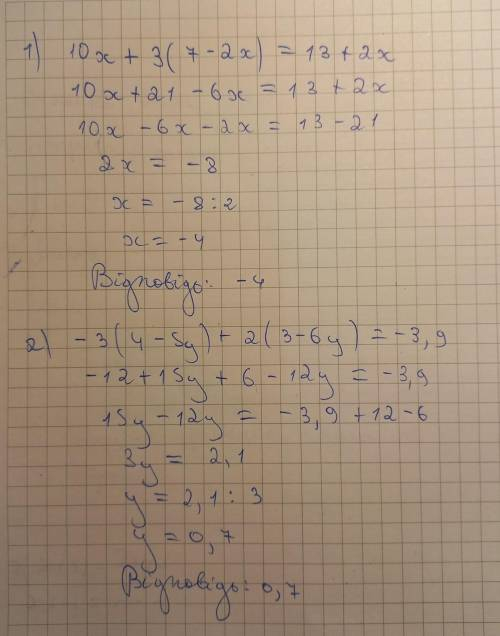 1) 10x + 3(7 - 2x) = 13 + 2x
10x + 21 - 6x = 13 + 2x
10x - 6x - 2x = 13 - 21
2x = -8
x = -8 : 2
x = -4
Відповідь: -4
2) -3(4 - 5y) + 2(3 - 6y) = -3,9
-12 + 15y + 6 - 12y = -3,9
15y - 12y = -3,9 + 12 - 6
3y = 2,1
y = 2,1 : 3
y = 0,7
Відповідь: 0,7